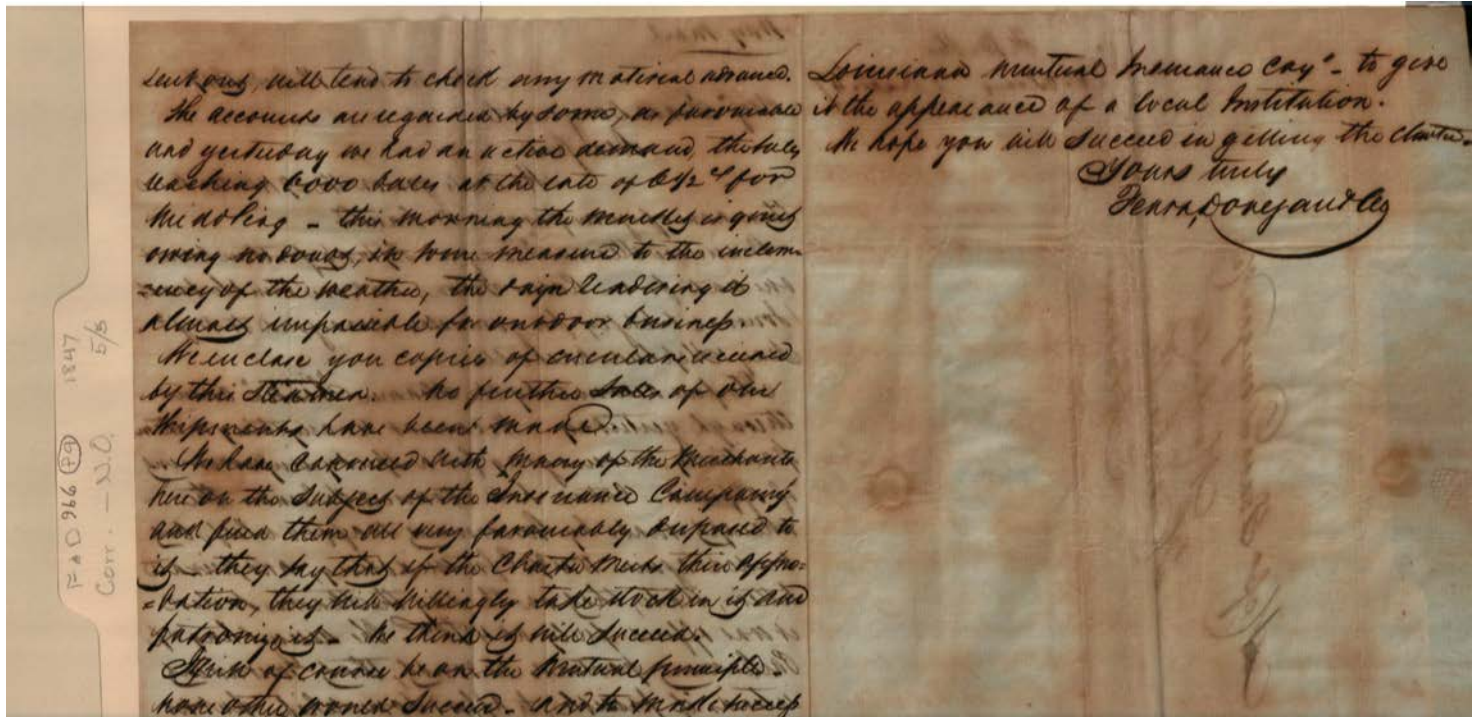 sent out, will tend to check any material advance.
The accounts are regarded by some, as favourable
and yesterday we had an active demand, the sales
reaching 6000 bales at the rate of 6 1/2 cts for
Middling - this morning the market is quiet
owing no doubt, in some measure to the inclem-
-ency of the weather, the rain rendering it
almost impossible for outdoor business.
We enclose you copies of circulars received
by this Steamer. No further Sales of our
Shipments have been made.
We have canvassed with many of the Merchants
here on the Subject of the Insurance Company
and find them all very favourably disposed to
it - they say that if the Charter meets their appro-
-bation, they will willingly take stock in it and
patronize it. We think it will Succeed.
It will of course be on the Mutual principle.
none other would Succeed - and to
Louisiana Mutual Insurance Coy - to give
it the appearance of a local Institution.
We hope you will Succeed in getting the Charter.
Yours truly
1847
5/5
F&D 966 P9
Corr. - N.O.